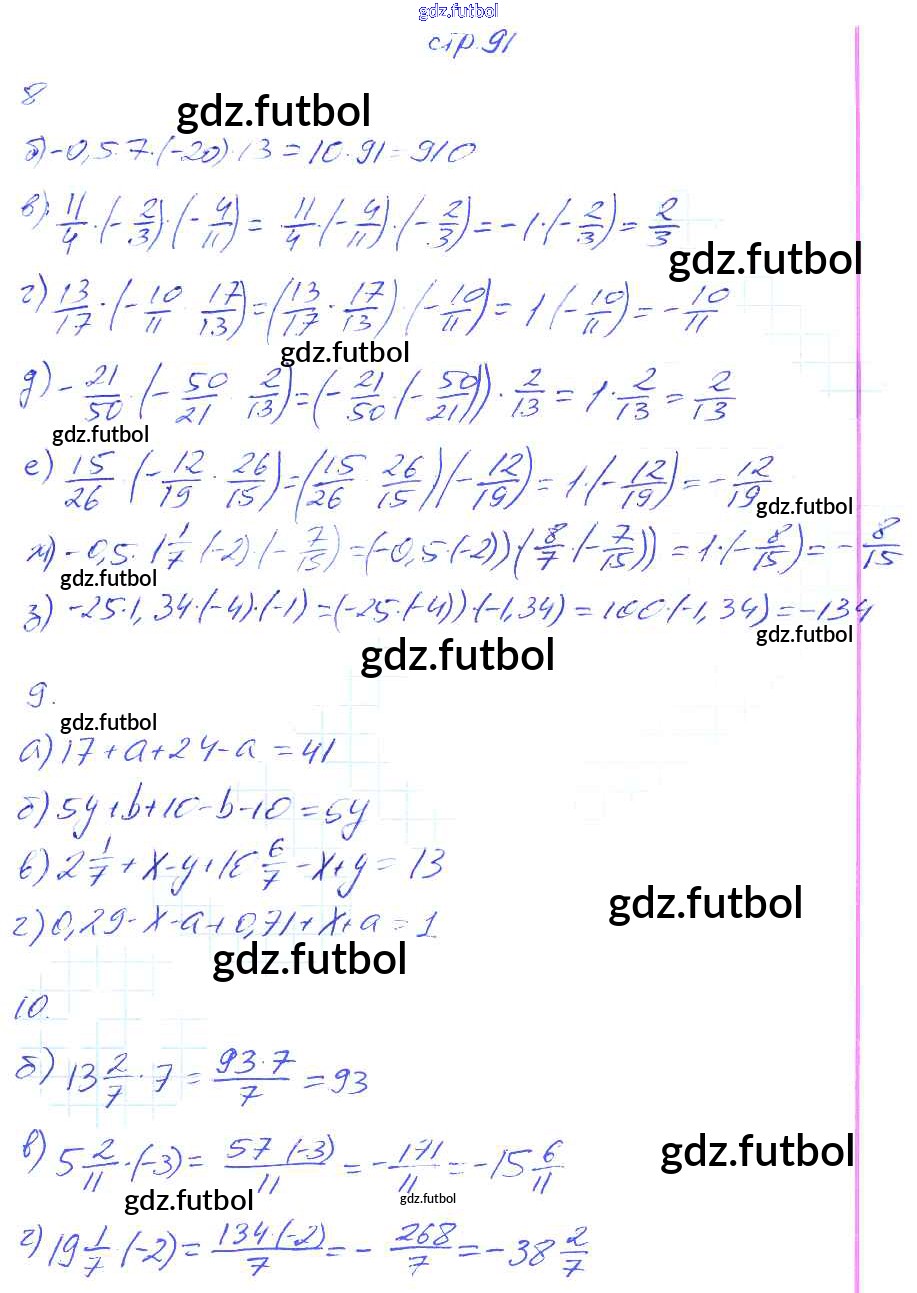 gdz.futbol
стр. 91
8
gdz.futbol
б) -0,5·7·(-20)·13 = 10·91 = 910
в) 11/4·(-2/3)·(-4/11) = 11/4·(-4/11)·(-2/3) = -1·(-2/3) = 2/3
gdz.futbol
г) 13/17·(-10/11 17/13) = (13/17·17/13)·(-10/11) = 1(-10/11) = -10/11
gdz.futbol
д) -21/50·(-50/21 2/13) = (-21/50·(-50/21))·2/13 = 1·2/13 = 2/13
gdz.futbol
е) 15/26·(-12/19·26/15) = (15/26 26/15)(-12/19) = 1·(-12/19) = -12/19
gdz.futbol
ж) -0,5·1 1/7·(-2)·(-7/15) = (-0,5·(-2))·(8/7·(-7/15)) = 1·(-8/15) = -8/15
gdz.futbol
з) -25·1,34·(-4)·(-1) = (-25·(-4))·(-1,34) = 100·(-1,34) = -134
gdz.futbol
gdz.futbol
9.
gdz.futbol
а) 17+a+24-a = 41
б) 5y+b+10-b-10 = 5y
в) 2 1/7+x-y+10 6/7-x+y = 13
gdz.futbol
г) 0,29-x-a+0,71+x+a = 1
gdz.futbol
10.
б) 13 2/7·7 = 93·7/7 = 93
в) 5 2/11·(-3) = 57·(-3)/11 = -171/11 = -15 6/11
gdz.futbol
gdz.futbol
gdz.futbol
г) 19 1/7·(-2) = 134·(-2)/7 = -268/7 = -38 2/7